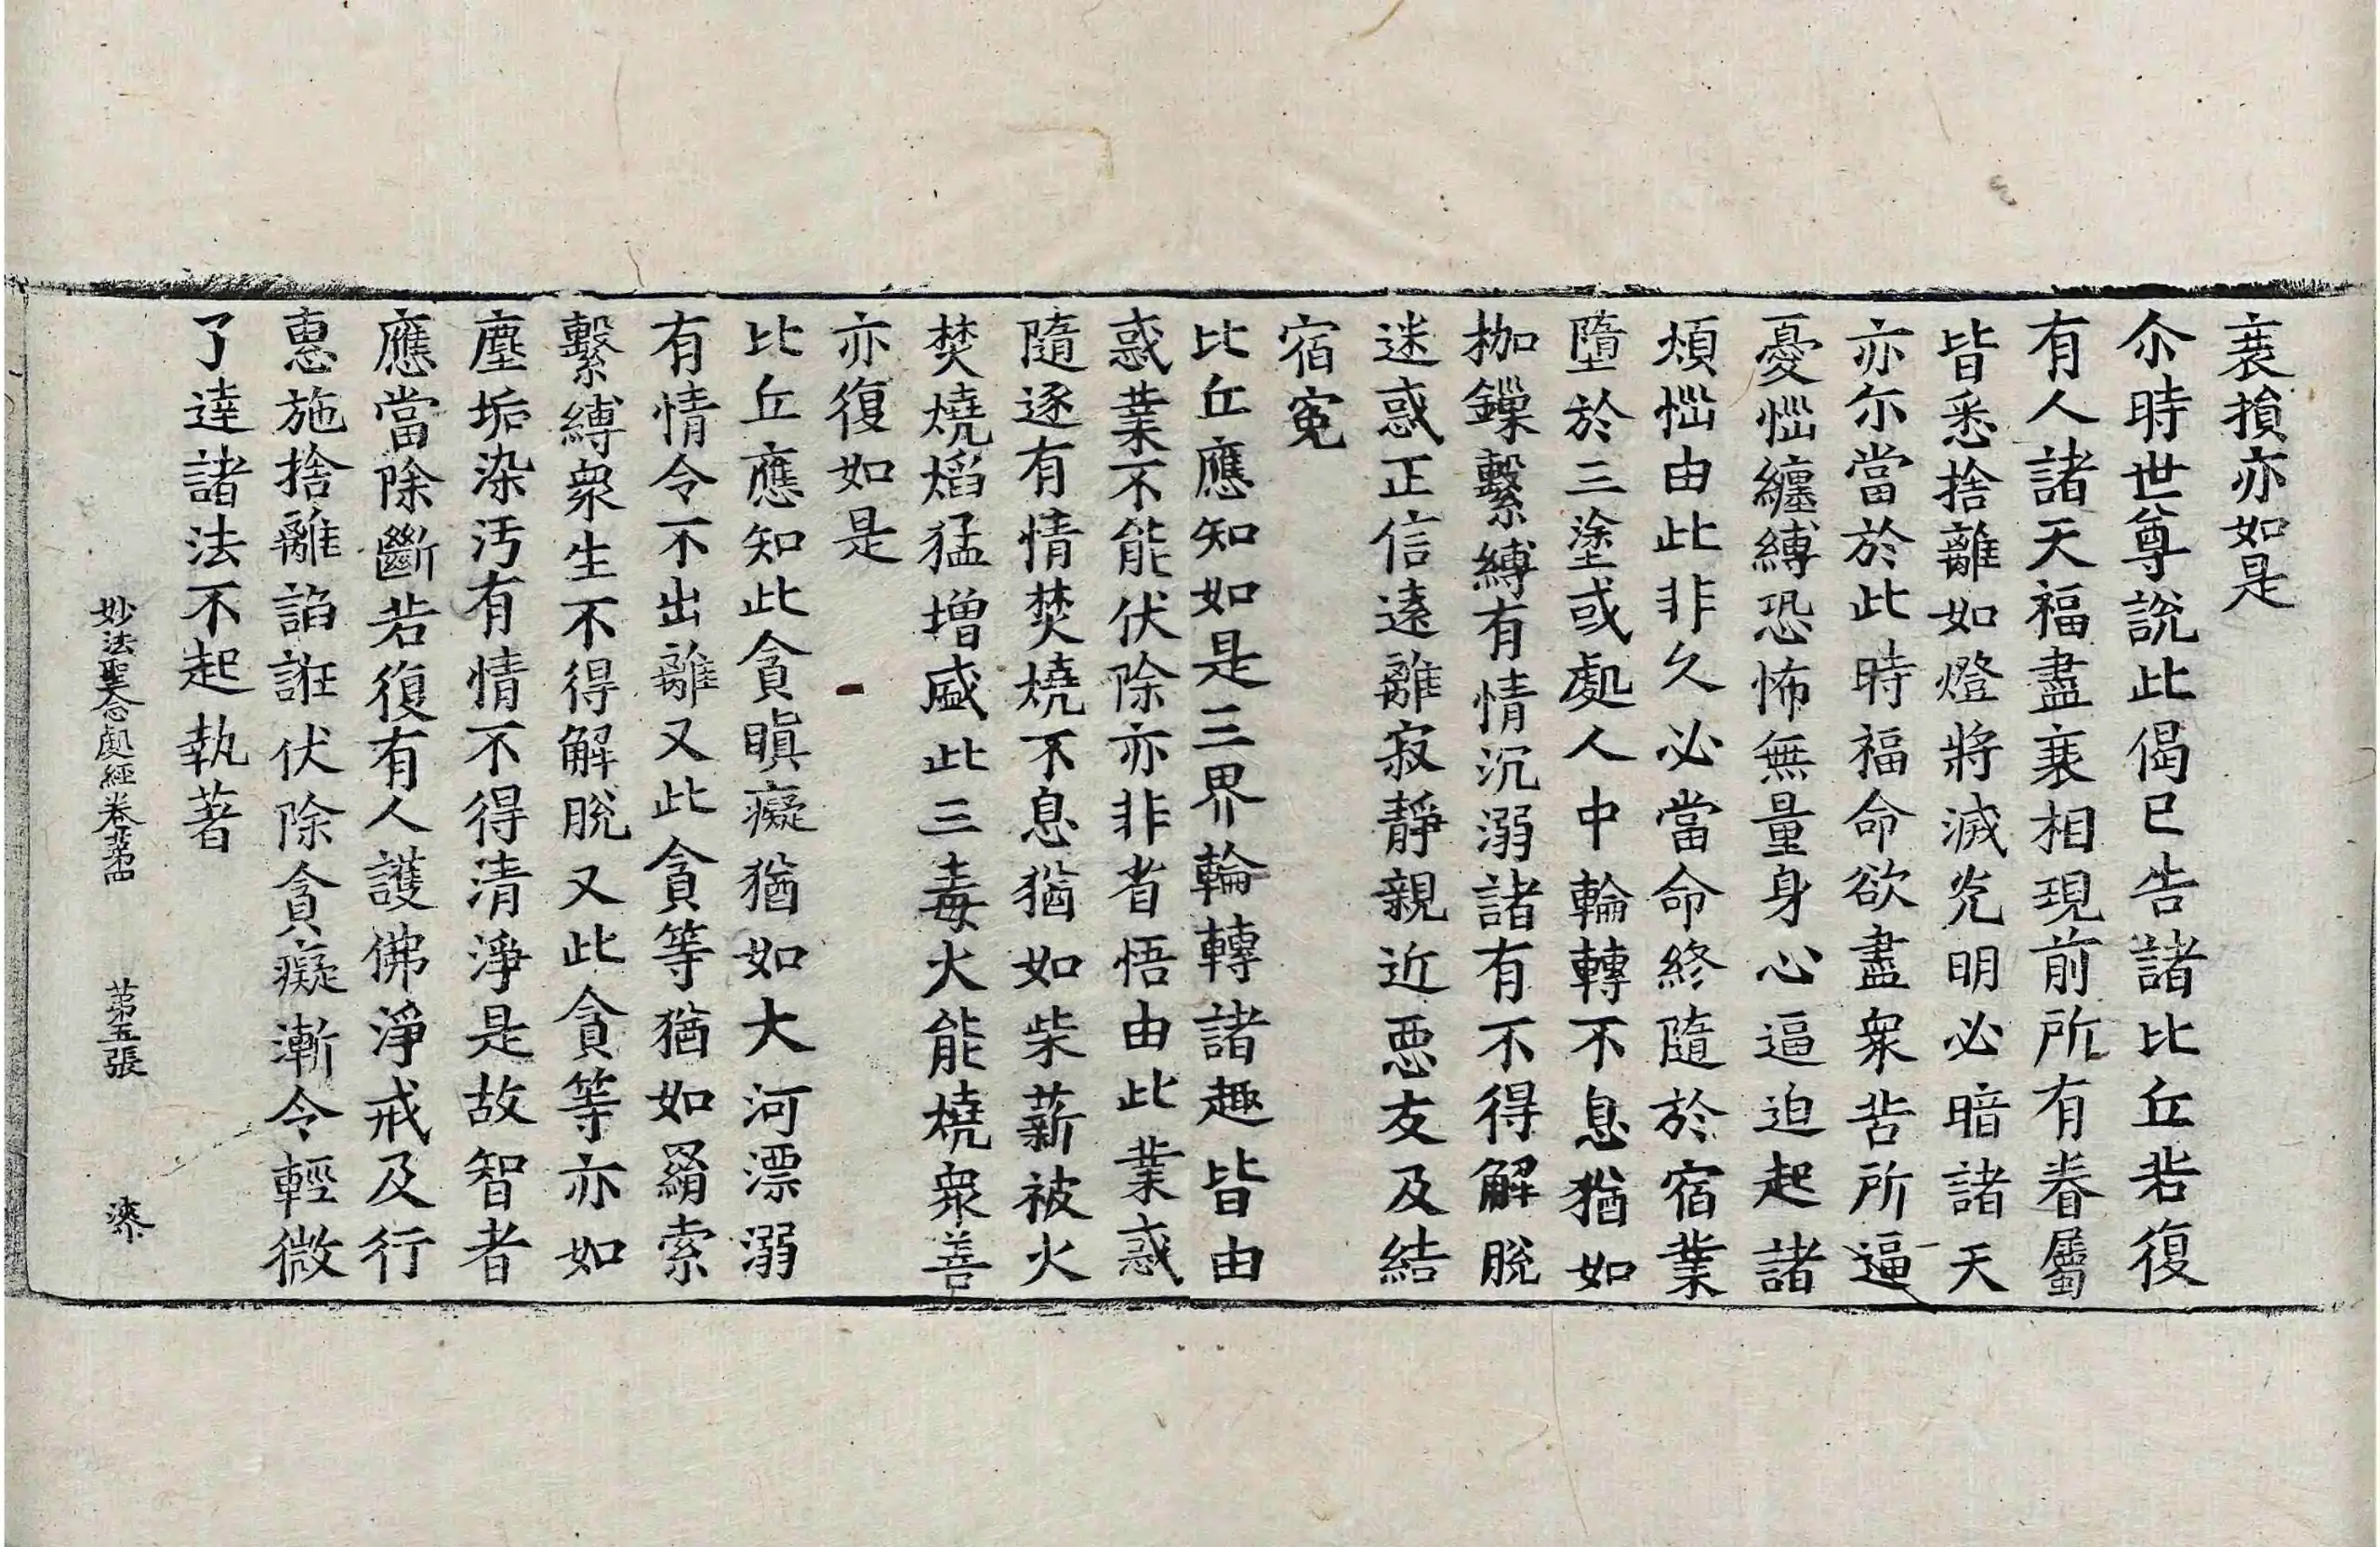 衰損亦如是
尒時世尊說此偈已告諸比丘若復
有人諸天福盡衰相現前所有眷屬
皆悉捨離如燈將滅光明必暗諸天
亦尒當於此時福命欲盡衆苦所逼
憂惱纏縛恐怖無量身心逼迫起諸
煩惱由此非久必當命終隨於宿業
墮於三塗或處人中輪轉不息猶如
枷鏁繫縛有情沉溺諸有不得解脫
迷惑正信遠離寂靜親近惡友及結
宿寃
比丘應知如是三界輪轉諸趣皆由
惑業不能伏除亦非省悟由此業惑
隨逐有情焚燒不息猶如柴薪被火
焚燒熖猛增盛此三毒火能燒衆善
亦復如是
比丘應知此貪瞋癡猶如大河漂溺
有情令不出離又此貪等猶如羂索
繫縛衆生不得解脫又此貪等亦如
塵垢染汚有情不得清淨是故智者
應當除斷若復有人護佛淨戒及行
惠施捨離諂誑伏除貪癡漸令輕微
了達諸法不起執著
妙法聖念處經卷第四 第五張 漆